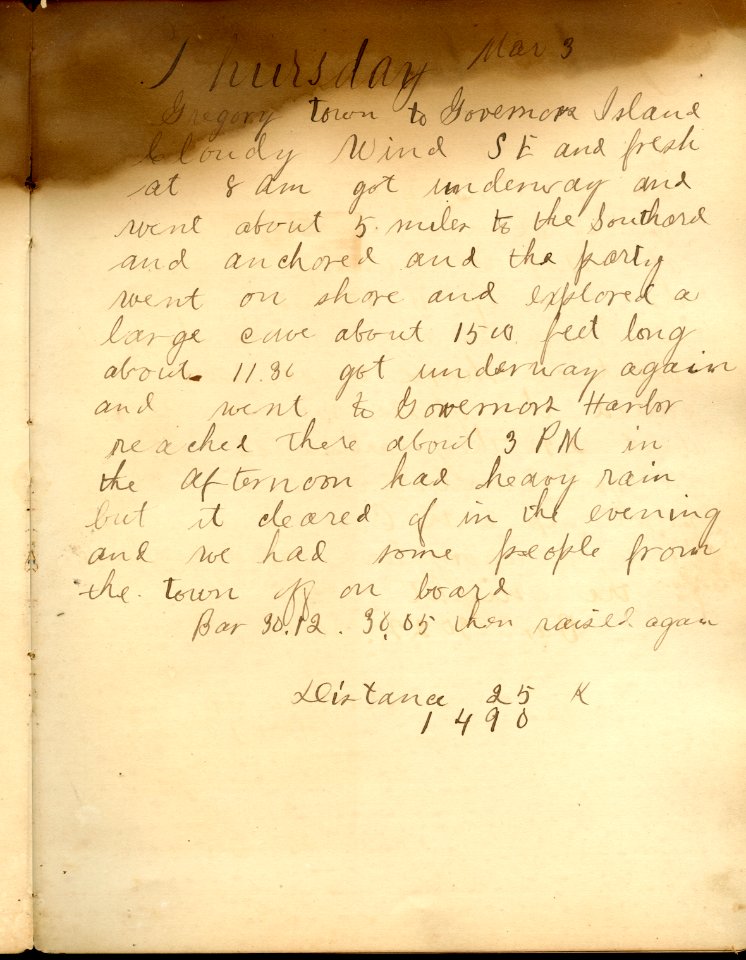 Thursday Mar 3
Gregory town to Governors Island
Cloudy Wind SE and fresh
at 8 am got underway and
went about 5 miles to the Southard
and anchored and the party
went on shore and explored a
large cave about 1500 feet long
about 11.30 got underway again
and went to Governors Harbor
reached there about 3 PM in
the afternoon had heavy rain
but it cleared of in the evening
and we had some people from
the town off on board
Bar 30.12 . 30.05 then raised again
Distance 25 K
1490